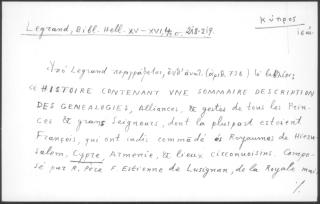 Κύπρος
Legrand, Bibl. Hell. XV-XVI, σ. 218-219.
Ὑπὸ Legrand περιγράφεται, ὑπ' ἀριθ. 738
« HISTOIRE CONTENANT VNE SOMMAIRE DESCRIPTION
DES GENEALOGIES, Alliances, & gestes de tous les Prin-
ces & grans Seigneurs, dont la pluspart estoient
François, qui ont iadis commãdé és Royaumes de Hieru-
salem, Cypre, Armenie, & lieux circonuoisins. Compo-
sé par R. Pere F. Estienne de Lusignan, de la Royale mai
./.